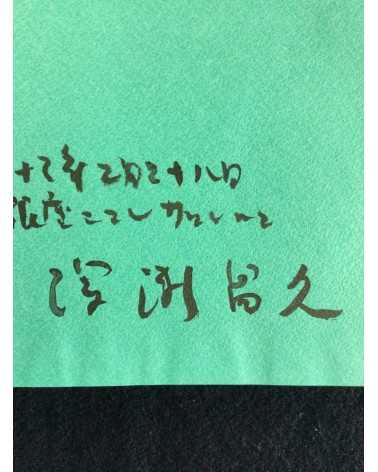 十二年二月二十八日
銀座ニコンサロンにて
深瀬昌久